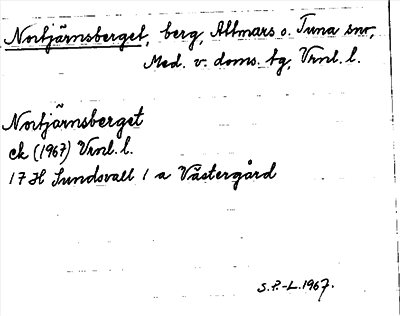 Nortjärnsberget, berg, Attmars o. Tuna snr,
Med. v. doms. tg, Vrnl. l.
Nortjärnsberget
ek (1967) Vrnl. l.
17 H Sundsvall 1 a Västergård
S.P.-L. 1967.